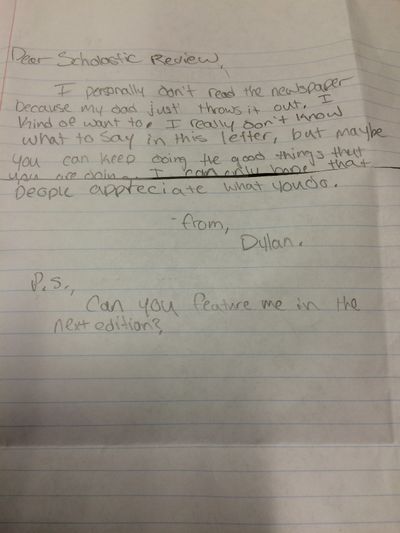 Dear Scholastic Review,
I personally don't read the newspaper
because my dad just throws it out. I
kind of want to. I really don't know
what to say in this letter, but maybe
you can keep doing the good things that
you are doing. I can only hope that
people appreciate what you do.
-from,
Dylan.
P.S.,
Can you feature me in the
next edition?